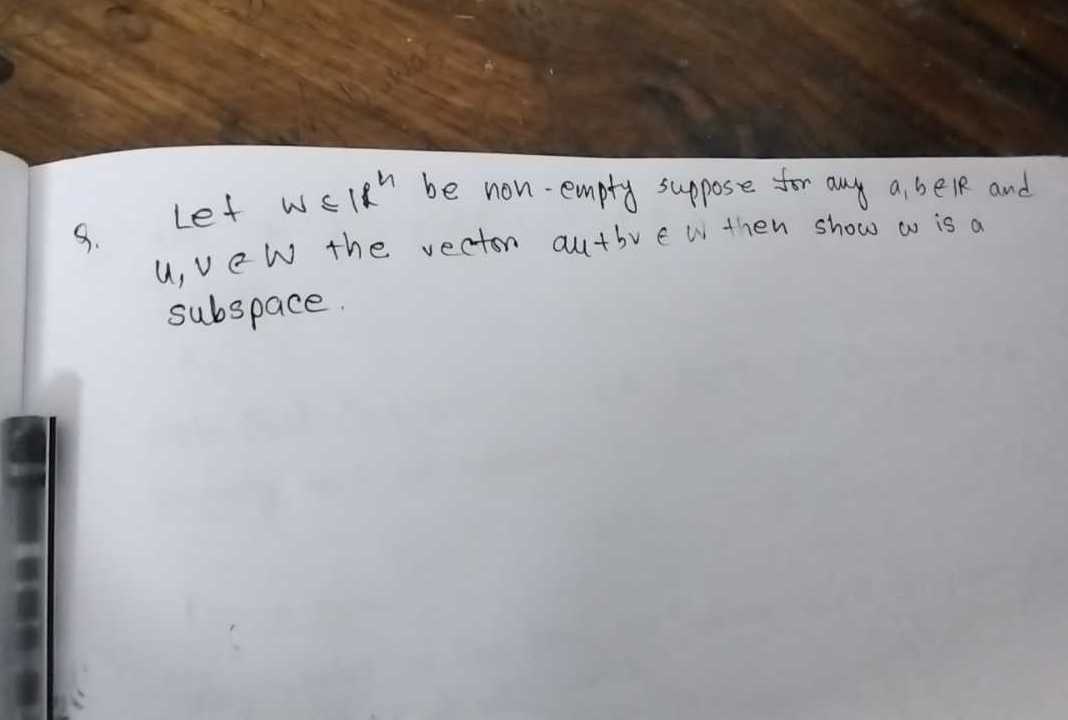 9. Let W ⊆ ℝⁿ be non-empty suppose for any a, b ∈ ℝ and
u, v ∈ W the vector au+bv ∈ W then show w is a
subspace.